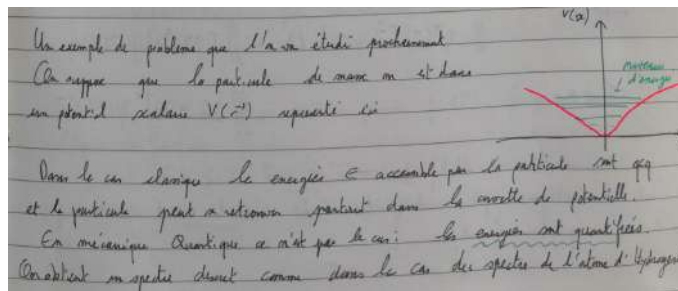 V(x)
Un exemple de problème que l'on va étudié prochainement
On suppose que la particule de masse m est dans
un potentiel scalaire V(r⃗) représenté ici
niveaux
d'énergie
Dans le cas classique les énergies E accessible par la particule sont qcq
et la particule peut se retrouver partout dans la cuvette de potentielle.
En mécanique Quantique ce n'est pas le cas: les énergies sont quantifiées.
On obtient un spectre discret comme dans le cas des spectre de l'atome d'Hydrogène